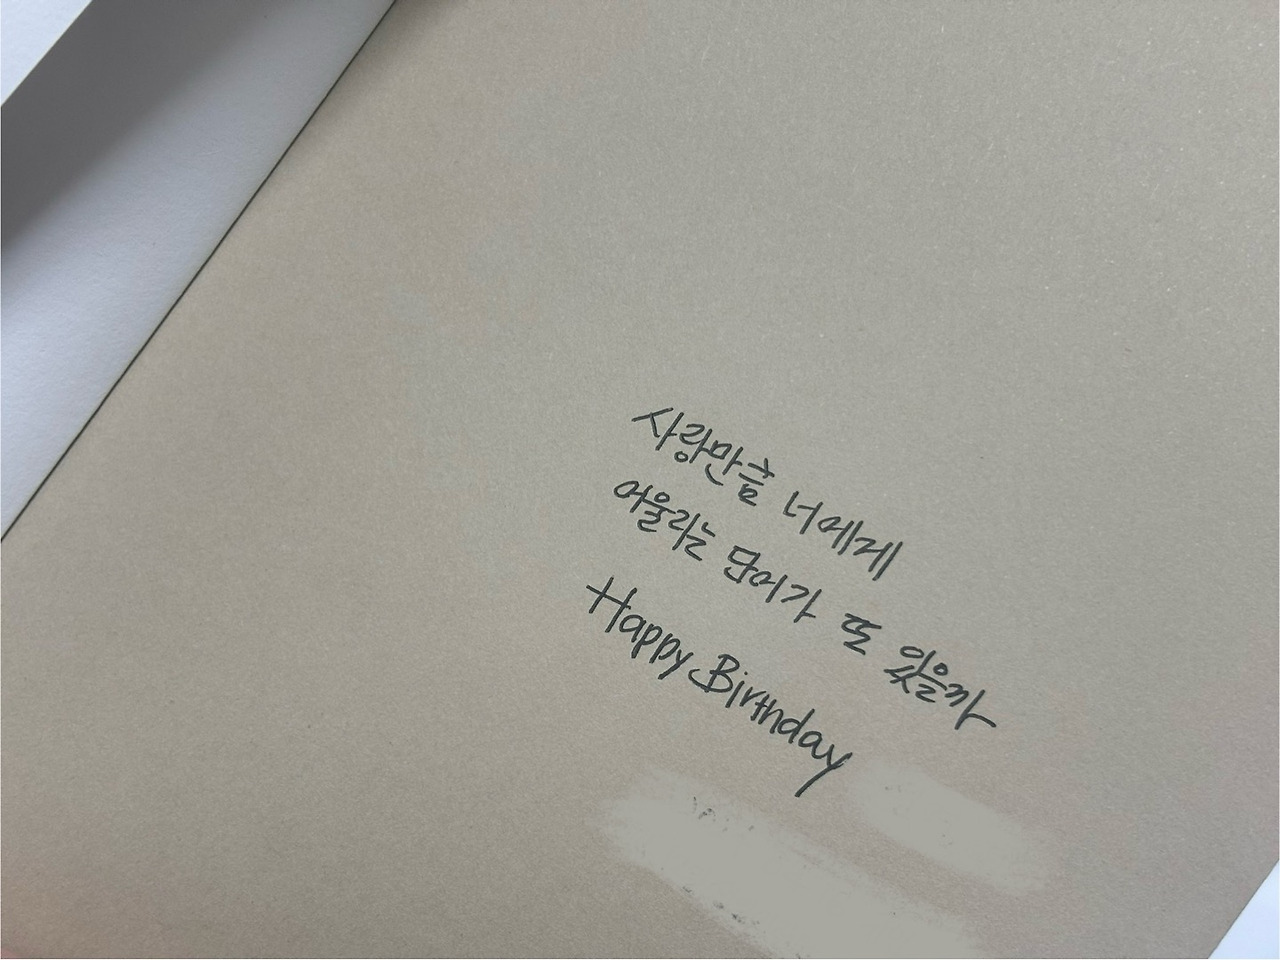 사랑만큼 너에게
어울리는 단어가 또 있을까
Happy Birthday